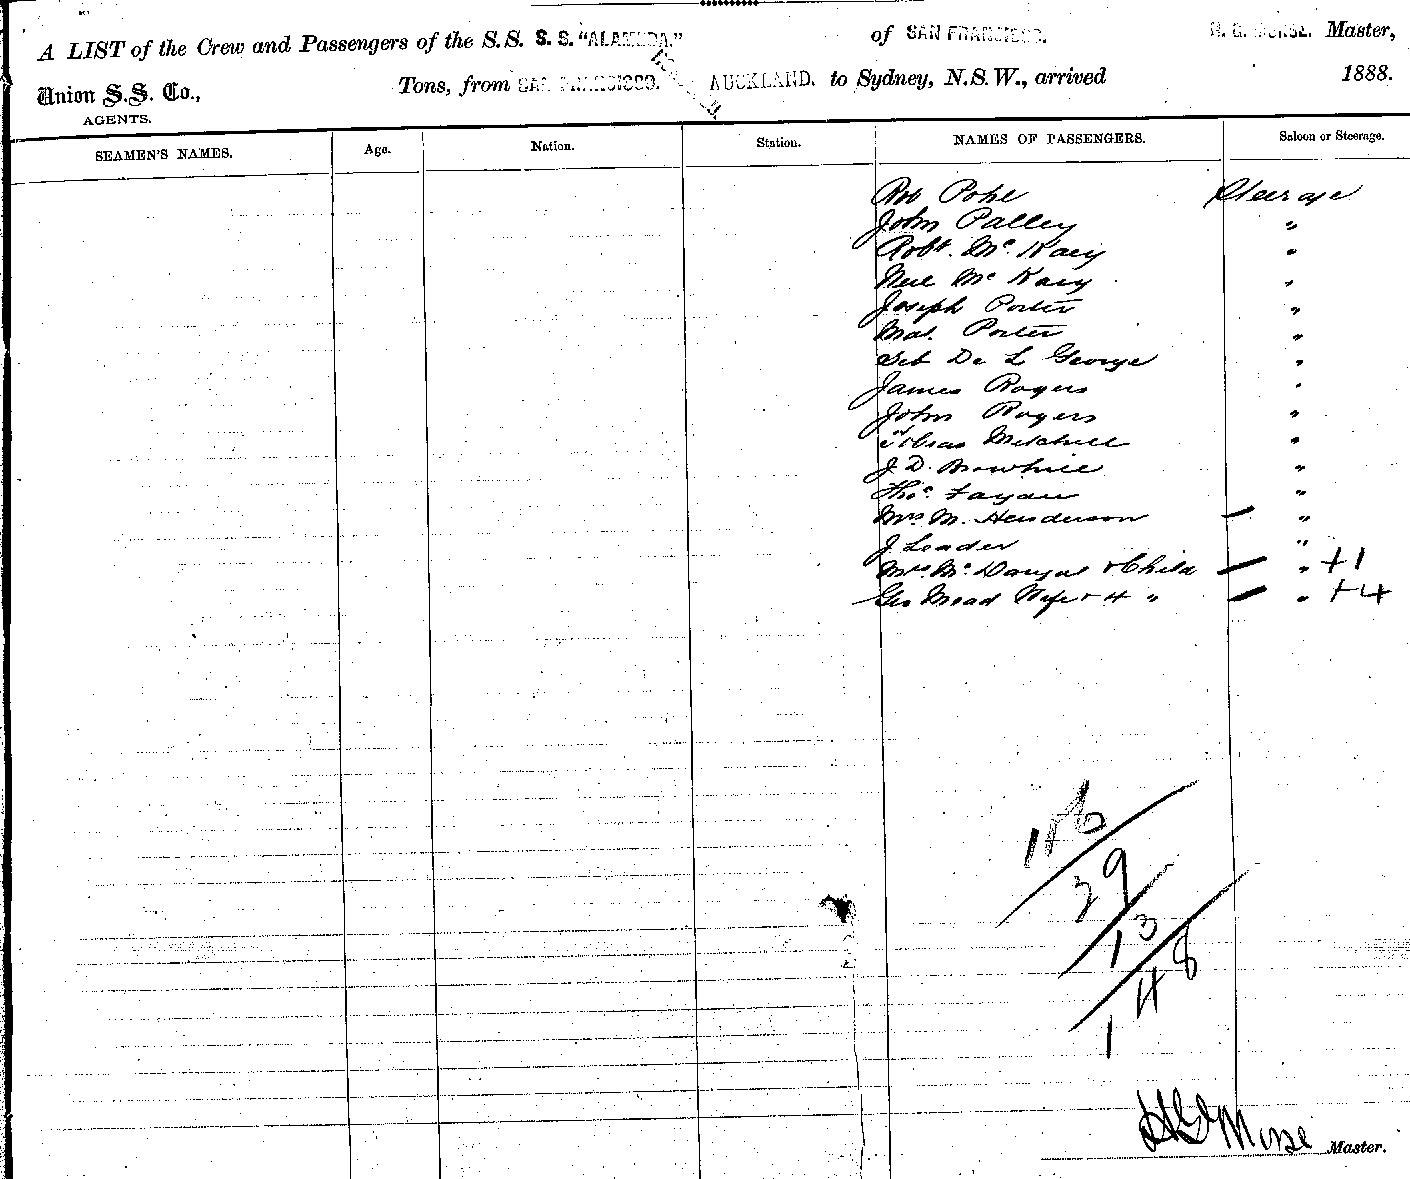 A LIST of the Crew and Passengers of the S.S. S. S. "ALAMEDA." of SAN FRANCISCO. H. G. MORSE. Master,
Union S.S. Co., Tons, from SAN FRANCISCO. AUCKLAND. to Sydney, N.S.W., arrived 1888.
AGENTS.
SEAMEN'S NAMES. Age. Nation. Station. NAMES OF PASSENGERS. Saloon or Steerage.
Rob Pohl Steerage
John Palley "
Robt. Mc Kaey "
Neil Mc Kaey "
Joseph Porter "
Mat. Porter "
De L George "
James Rogers "
John Rogers "
Mitchell "
J. D. "
Thos. "
Mrs M. Henderson — "
J Leader "
Mrs Mc Dougal & Child — " +1
Geo Mead Wife & 4 " — " +4
39
13
148
HG Morse Master.